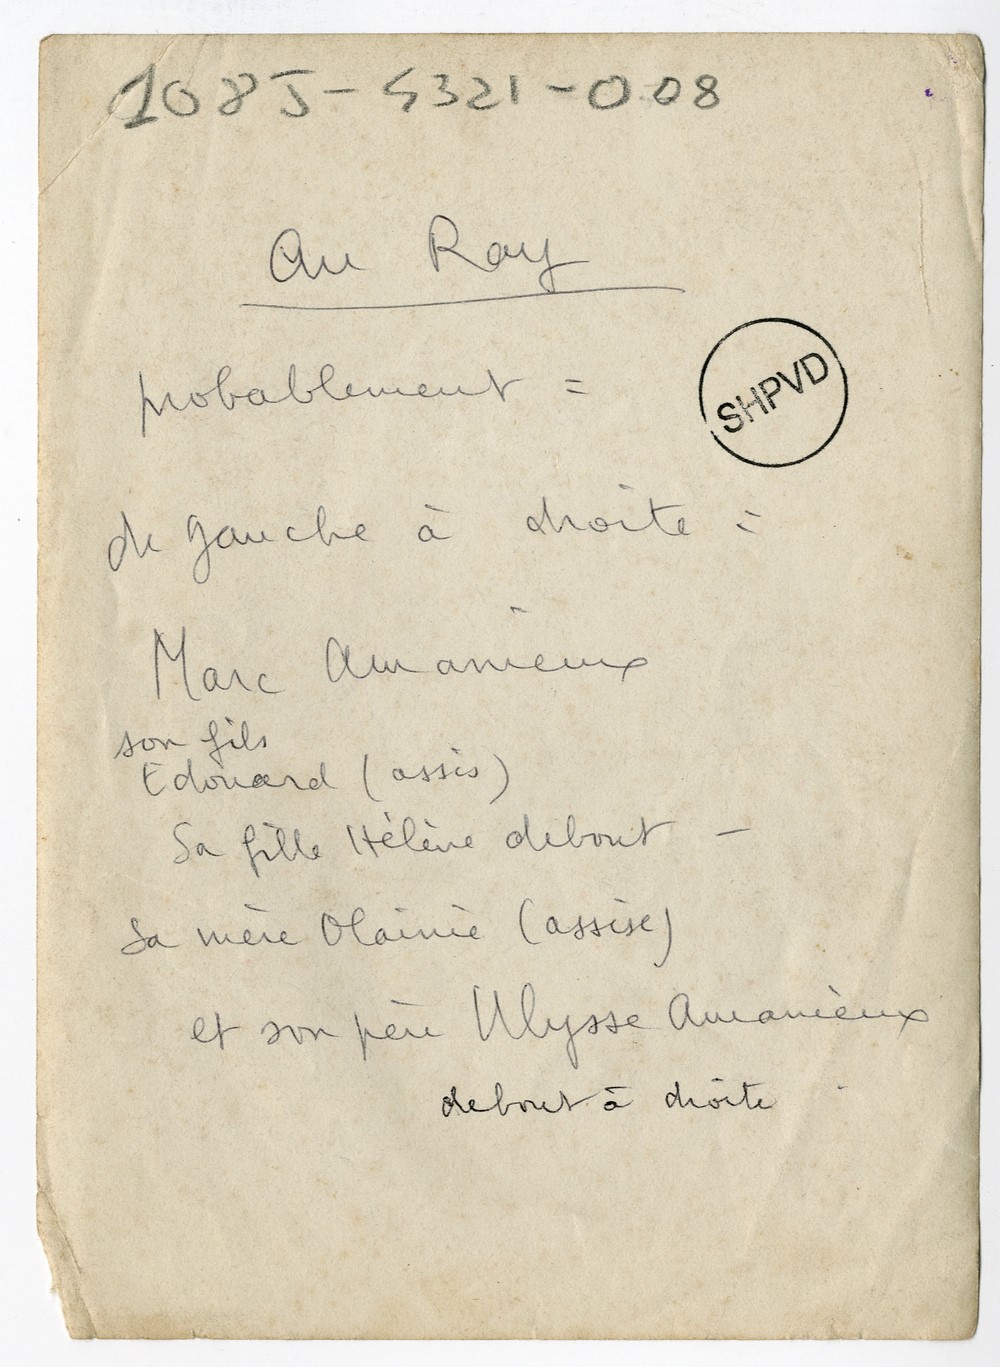 108J-4321-008
Au Ray
probablement =
de gauche à droite =
SHPVD
Marc Amanieux
son fils
Edouard (assis)
Sa fille Hélène debout -
Sa mère (assise)
et son père Ulysse Amanieux
debout à droite